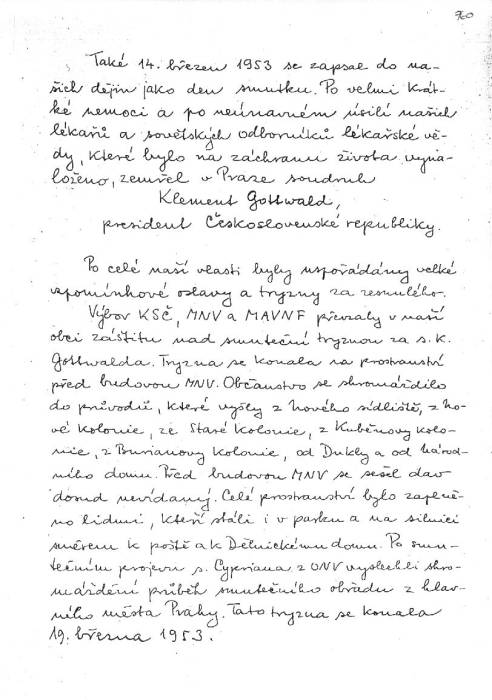 960
Také 14. březen 1953 se zapsal do na-
šich dějin jako den smutku. Po velmi krát-
ké nemoci a po neúnavném úsilí našich
lékařů a sovětských odborníků lékařské vě-
dy, které bylo na záchranu života vyna-
loženo, zemřel v Praze soudruh
Klement Gottwald,
president Československé republiky.
Po celé naší vlasti byly uspořádány velké
vzpomínkové oslavy a tryzny za zesnulého.
Výbor KSČ, MNV a MAVNF převzaly v naší
obci záštitu nad smuteční tryznou za s. K.
Gottwalda. Tryzna se konala na prostranství
před budovou MNV. Občanstvo se shromáždilo
do průvodů, které vyšly z nového sídliště, z no-
vé kolonie, ze Staré kolonie, z Kuběnovy kolo-
nie, z Burianovy kolonie, od Dukly a od Národ-
ního domu. Před budovou MNV se sešel dav
dosud nevídaný. Celé prostranství bylo zaplně-
no lidmi, kteří stáli i v parku a na silnici
směrem k poště a k Dělnickému domu. Po smu-
tečním projevu s. Cypriana z ONV vyslechli shro-
máždění průběh smutečního obřadu z hlav-
ního města Prahy. Tato tryzna se konala
19. března 1953.